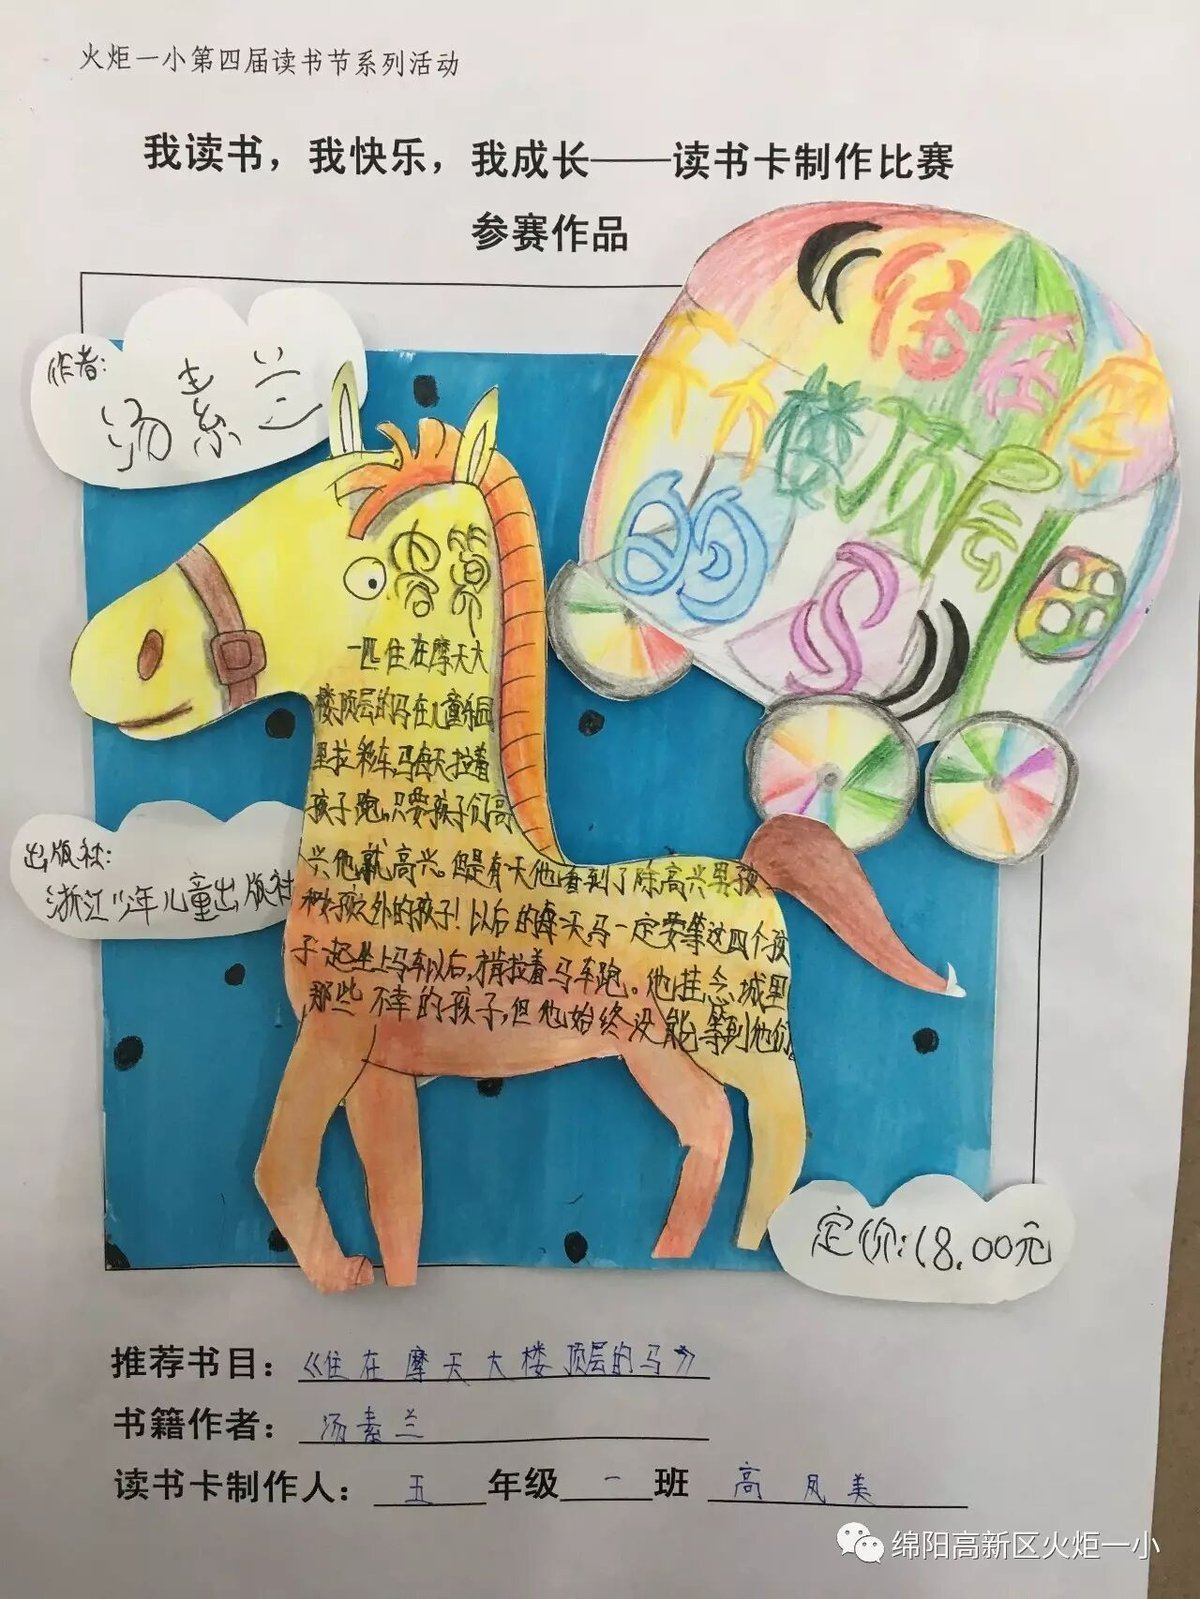 火炬一小第四届读书节系列活动
我读书，我快乐，我成长——读书卡制作比赛
参赛作品
《住在摩
天大楼顶层
的马》
作者:
汤素兰
内容简介
一匹住在摩天大
楼顶层的马在儿童乐园
里拉彩车,马每天拉着
孩子跑,只要孩子们高
兴他就高兴。但是有天他看到了除高兴男孩
和女孩之外的孩子!以后的每天马一定要等这四个孩
子一起坐上马车以后,才肯拉着马车跑。他挂念城里
那些不幸的孩子,但他始终没能等到他们。
出版社:
浙江少年儿童出版社
定价:18.00元
推荐书目：《住在摩天大楼顶层的马》
书籍作者：汤素兰
读书卡制作人：五年级一班 高凤美
绵阳高新区火炬一小